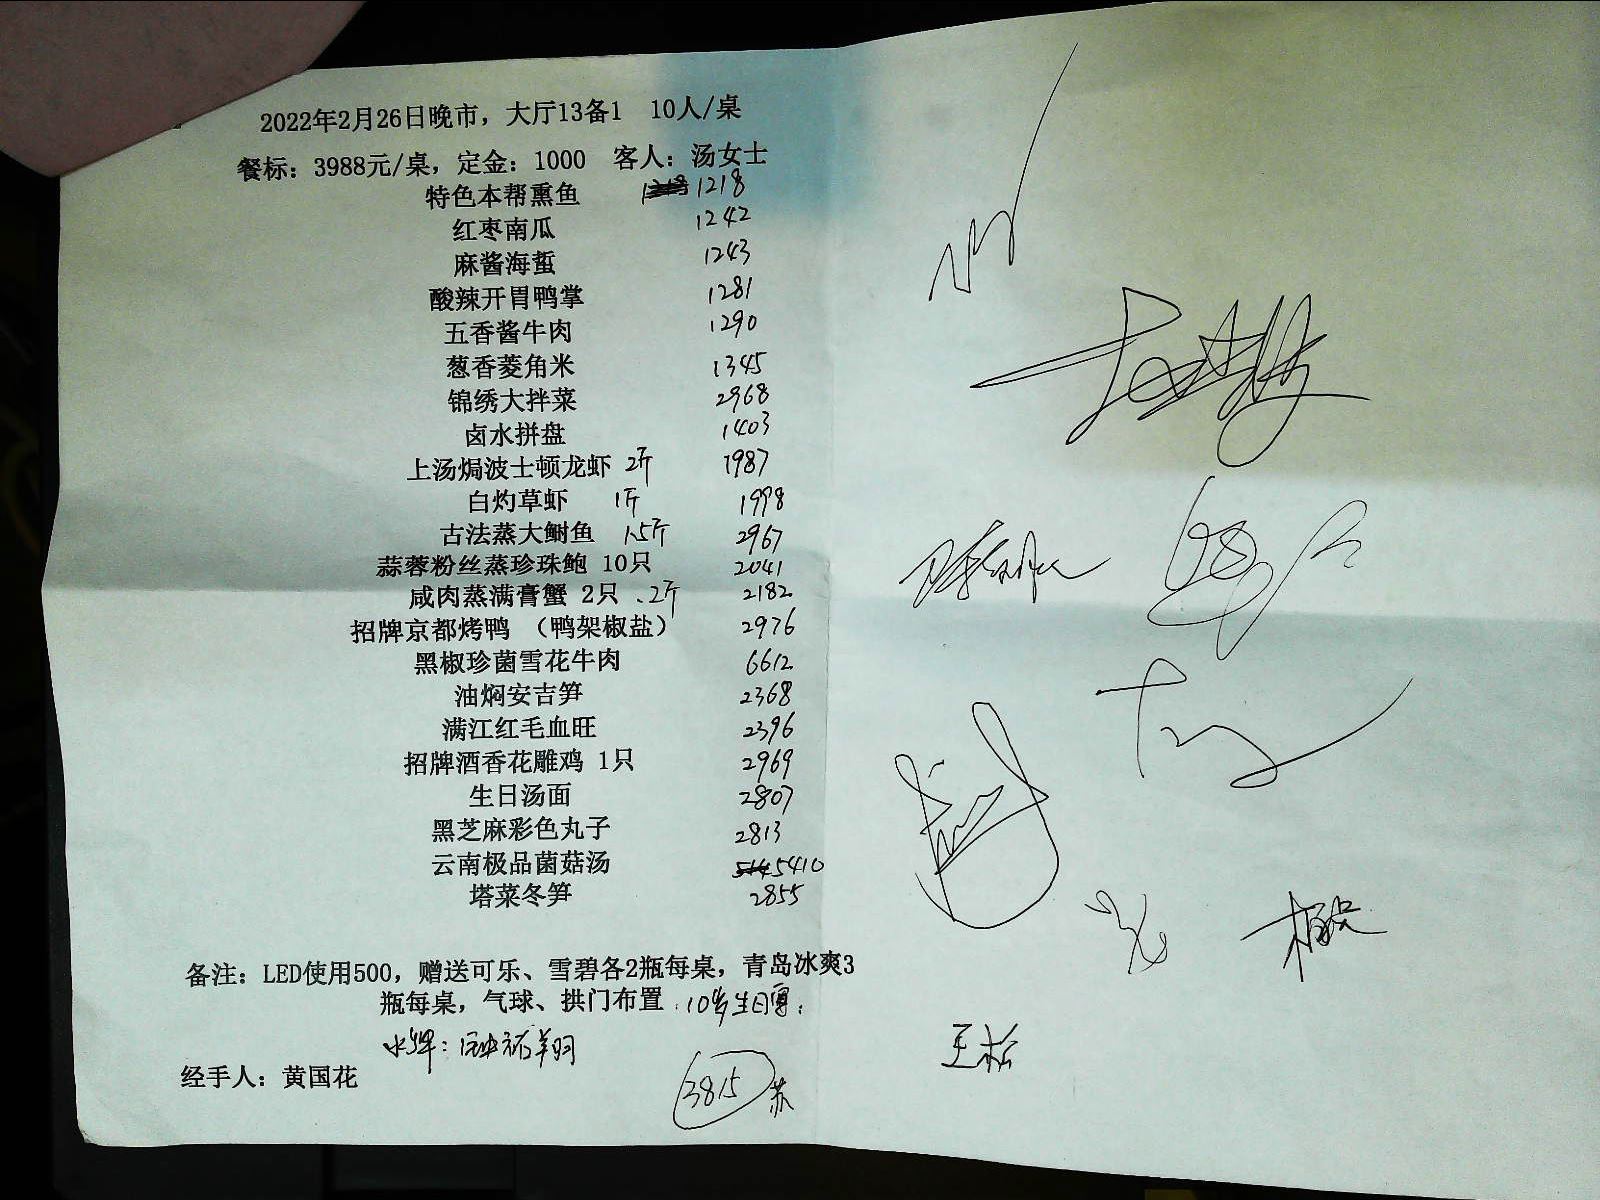 2022年2月26日晚市，大厅13备1 10人/桌
餐标：3988元/桌，定金：1000 客人：汤女士
特色本帮熏鱼 1218
红枣南瓜 1242
麻酱海蜇 1243
酸辣开胃鸭掌 1281
五香酱牛肉 1290
葱香菱角米 1345
锦绣大拌菜 2968
卤水拼盘 1403
上汤焗波士顿龙虾 2斤 1987
白灼草虾 1斤 1998
古法蒸大鲥鱼 1.5斤 2967
蒜蓉粉丝蒸珍珠鲍 10只 2041
咸肉蒸满膏蟹 2只 .2斤 2182
招牌京都烤鸭 （鸭架椒盐） 2976
黑椒珍菌雪花牛肉 6612
油焖安吉笋 2368
满江红毛血旺 2396
招牌酒香花雕鸡 1只 2969
生日汤面 2807
黑芝麻彩色丸子 2813
云南极品菌菇汤 5410
塔菜冬笋 2855
备注：LED使用500，赠送可乐、雪碧各2瓶每桌，青岛冰爽3
瓶每桌，气球、拱门布置 10岁生日宴
水牌：
经手人：黄国花
3815 苏
王松